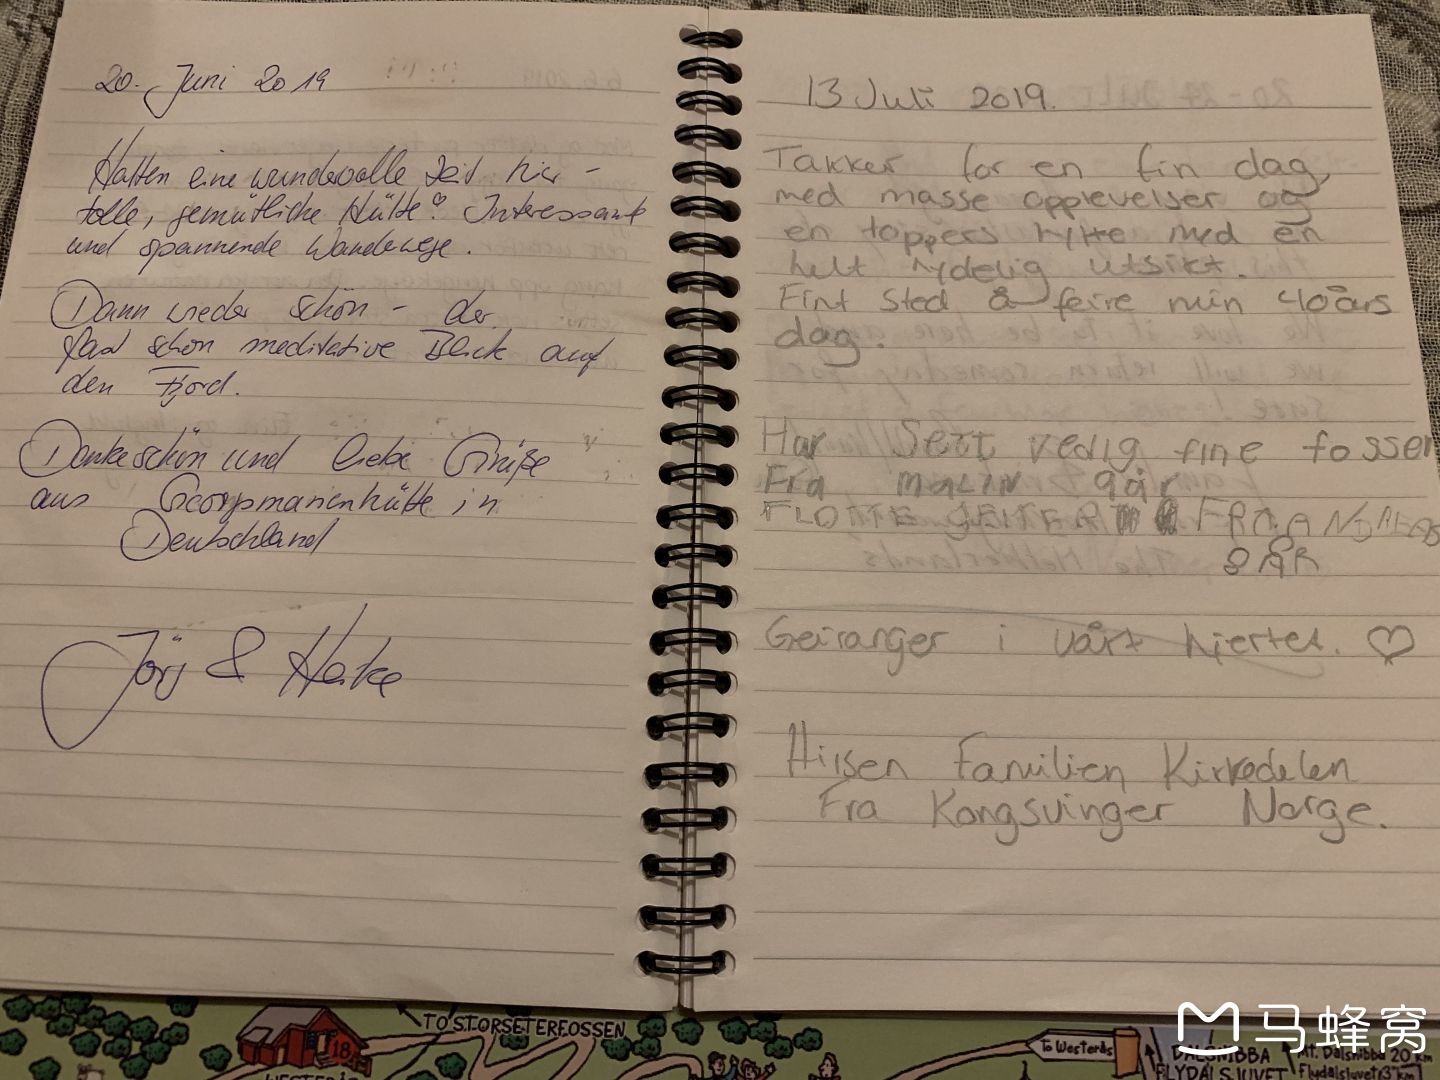 20. Juni 2019
Hatten eine wundervolle Zeit hier -
tolle, gemütliche Hütte! Interessante
und spannende Wanderwege.
Dann wieder schön - der
fast schon meditative Blick auf
den Fjord.
Dankeschön und liebe Grüße
aus in
Deutschland
Jörg & Heike
13 Juli 2019.
Takker for en fin dag,
med masse opplevelser og
en toppers hytte med en
helt nydelig utsikt.
Fint sted å feire min 40års
dag.
Har Sett veldig fine fosser
Fra MALIN 9år
FLOTTE GEITER FRA ANDREAS
8 ÅR
Geiranger i vårt hjertet. ♡
Hilsen Familien
Fra Kongsvinger Norge.
TO STORSETERFOSSEN
18
To Westerås
DALSNIBBA
FLYDALSJUVET
Mt. Dalsnibba 20 km
Flydalsjuvet 3 km
马蜂窝